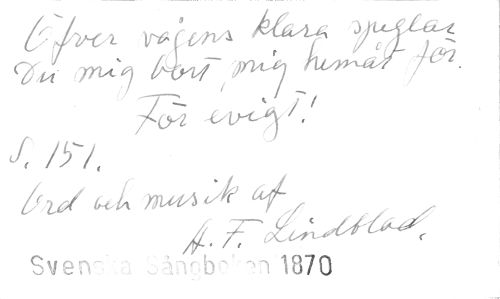 Öfver vågens klara speglar
Du mig bort, mig hemåt för.
För evigt!
S. 151.
Ord och musik af
A. F. Lindblad.
Svenska Sångboken 1870